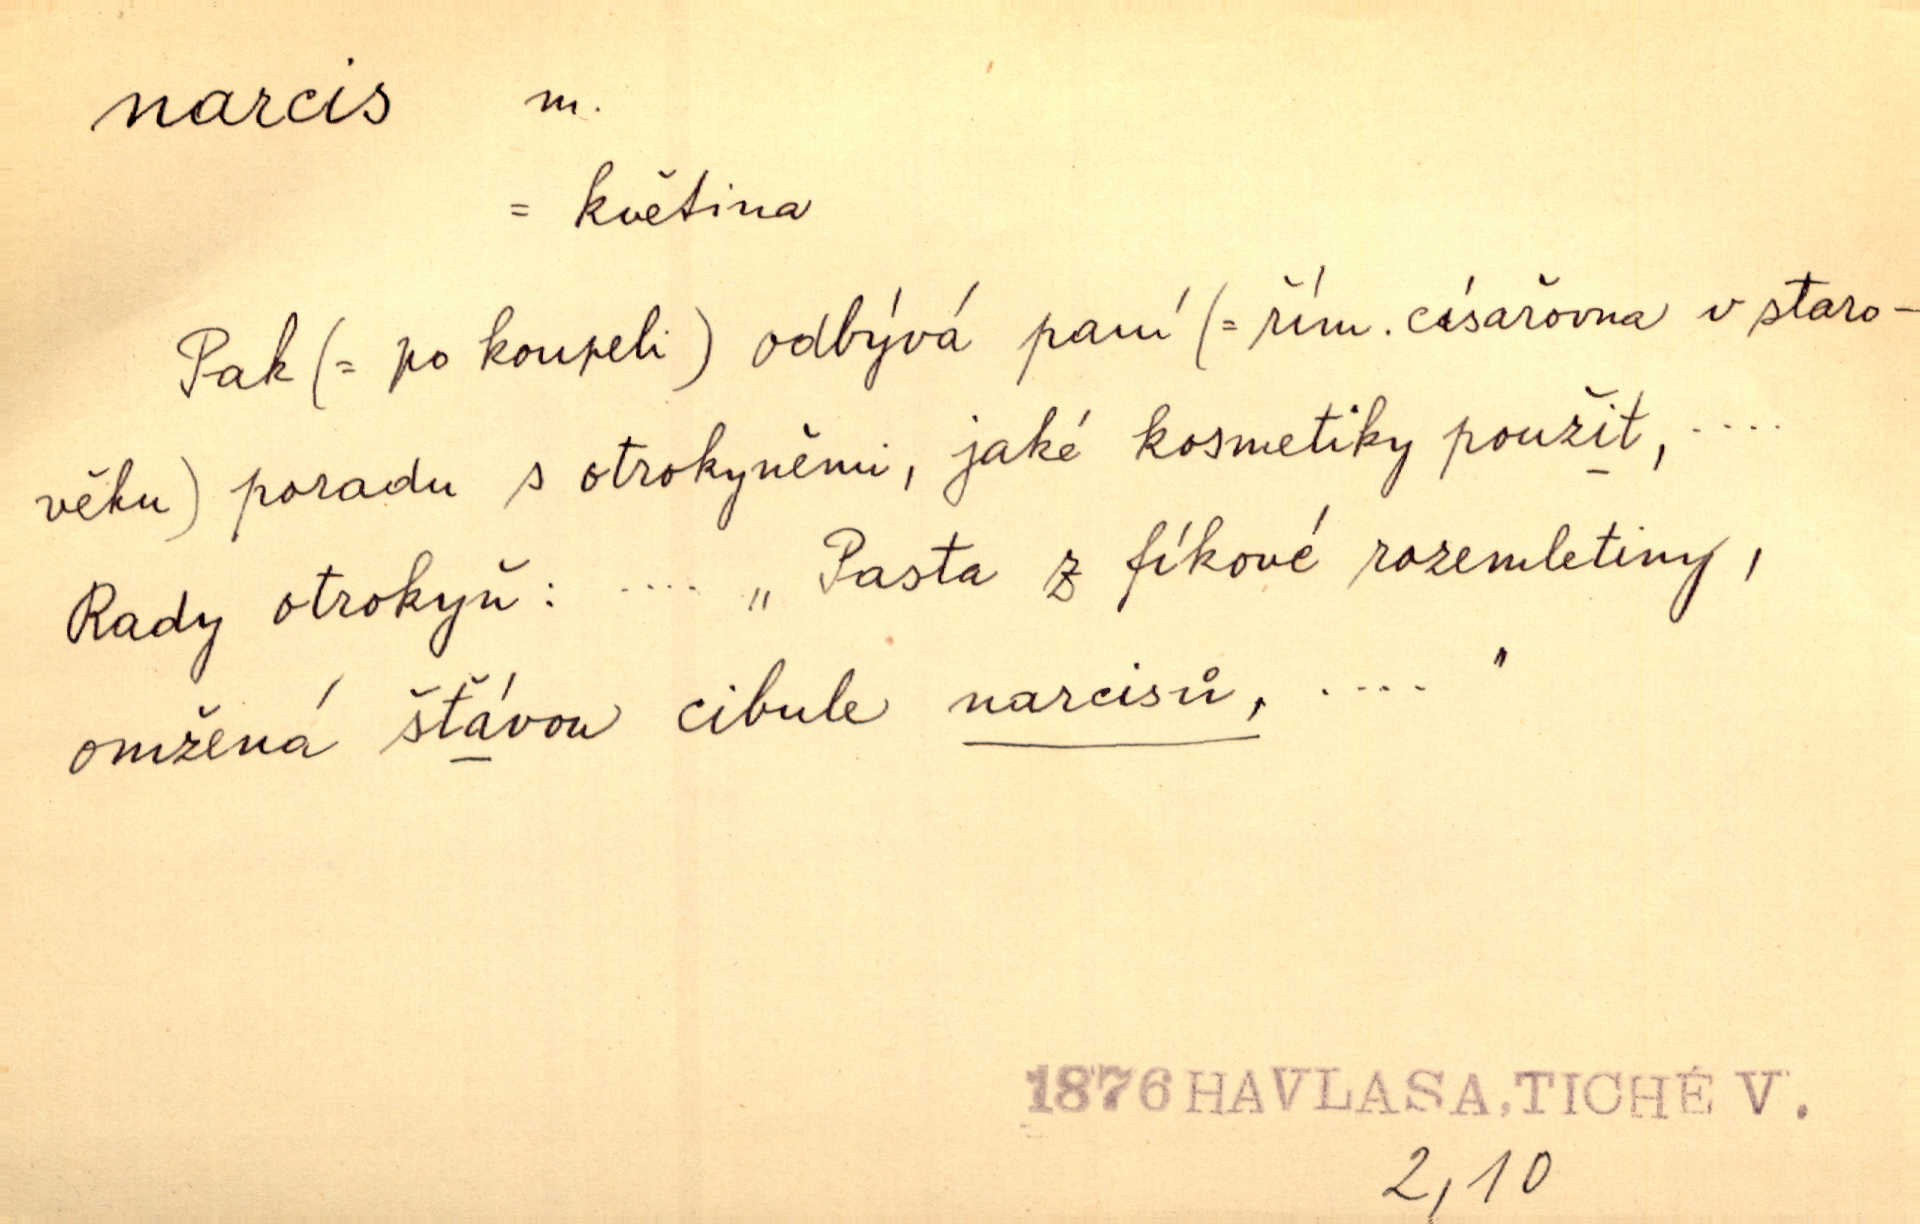 narcis m.
= květina
Pak (= po koupeli) odbývá paní (= řím. císařovna v staro-
věku) poradu s otrokyněmi, jaké kosmetiky použit, ....
Rady otrokyň: .... „Pasta z fíkové rozemletiny,
omžená šťávou cibule narcisů, ...."
1876 HAVLASA, TICHÉ V.
2,10